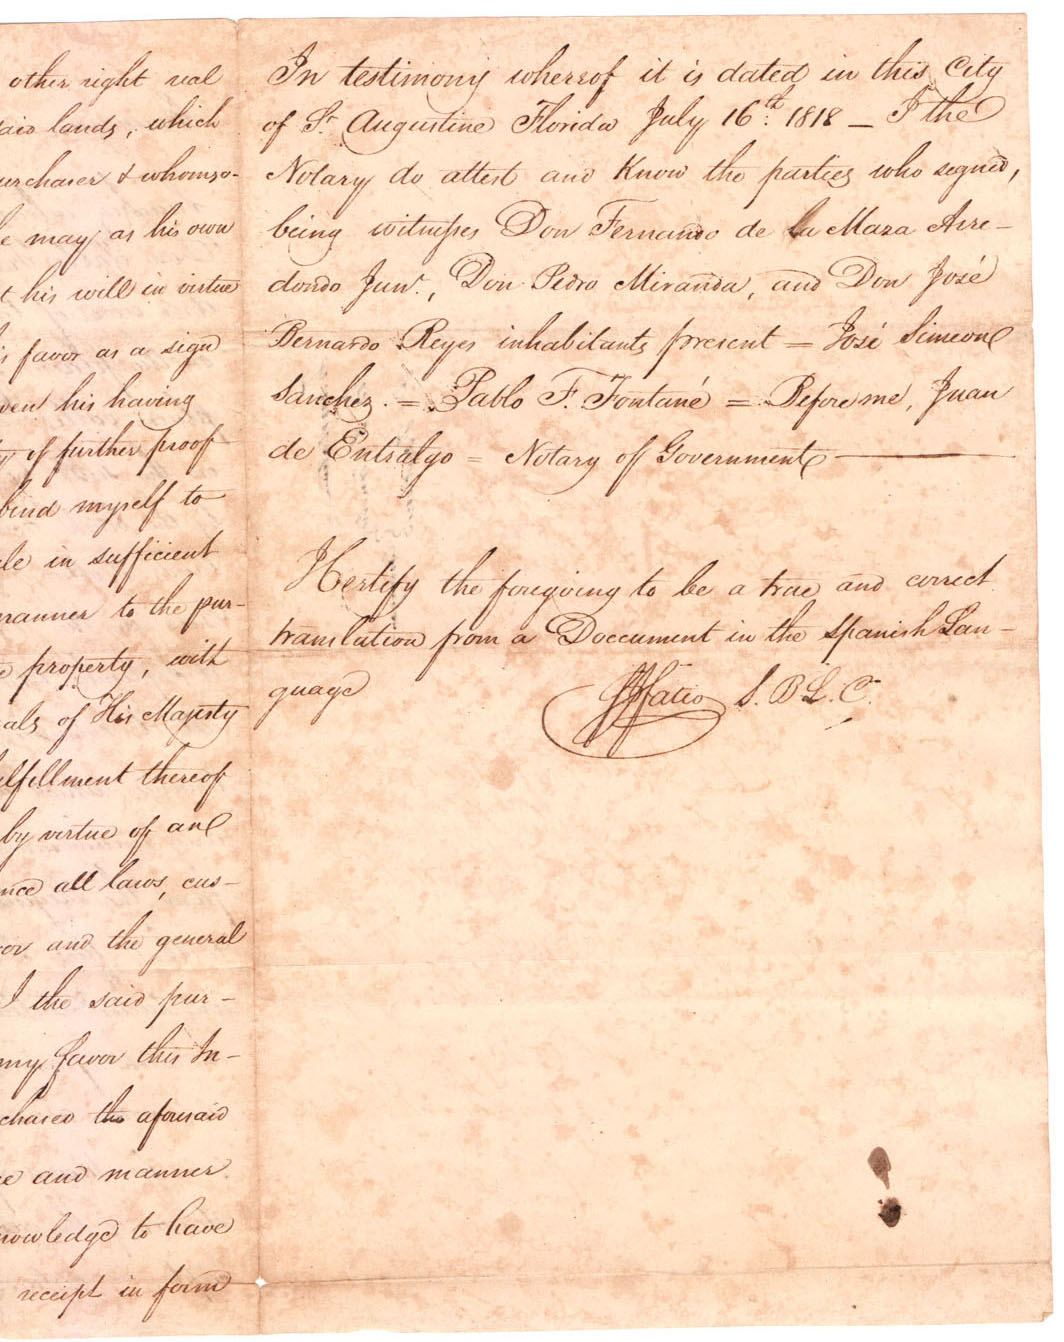 other right real
said lands, which
urchaser & whomso-
he may as his own
t his will in virtue
is favor as a sign
ven his having
y of further proof
bind myself to
le in sufficient
manner to the pur-
e property, with
als of His Majesty
ulfillment thereof
by virtue of an
nce all laws, cus-
or and the general
I the said pur-
my favor this In-
chased the aforesaid
e and manner
nowledge to have
receipt in form
In testimony whereof it is dated in this City
of St. Augustine Florida July 16th. 1818 — I the
Notary do attest and Know the parties who signed,
being witnesses Don Fernando de la Maza Arre-
dondo Junr., Don Pedro Miranda, and Don José
Bernardo Reyes inhabitants present = José Simeon
Sanchez. = Pablo F. Fontané = Before me, Juan
de Entralgo = Notary of Government
I Certify the foregoing to be a true and correct
translation from a Doccument in the Spanish Lan-
guage
Fatio S. B. L. C.